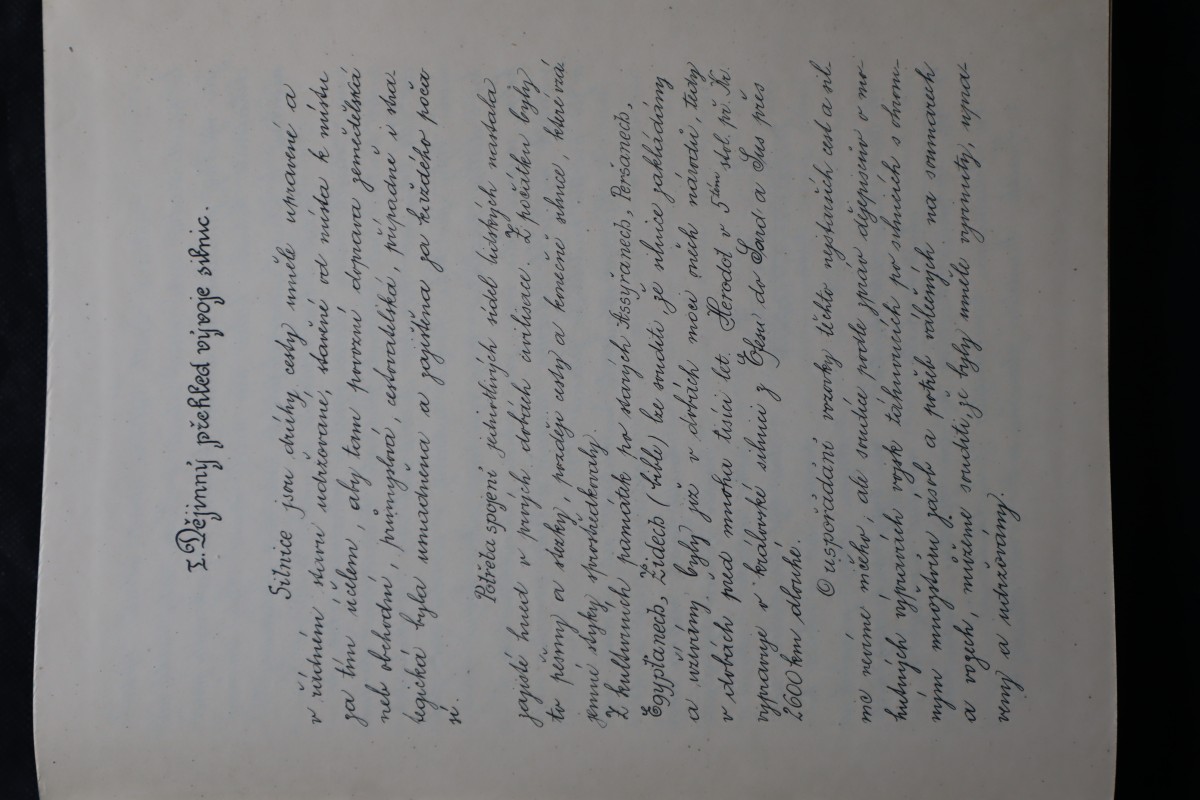 I. Dějinný přehled vývoje silnic.
Silnice jsou druhy cesty uměle upravené a
v řádném stavu udržované, stavěné od místa k místu
za tím účelem, aby tam povozní doprava zemědělská
neb obchodní, průmyslová, cestovatelská, případně i stra-
tegická byla usnadněna a zajištěna za každého poča
sí.
Potřeba spojení jednotlivých sídel lidských nastala
zajisté hned v prvých dobách civilisace. Z počátku byly
to pěšiny a stezky, později cesty a konečně silnice, které vzá
jemné styky zprostředkovaly.
Z kulturních památek po starých Assyřanech, Peršanech,
Egypťanech, Židech (bible) lze souditi že silnice zakládány
a užívány byly již v dobách moci oněch národů, tedy
v dobách před mnoha tisíci let. Herodot v 5tém stol. př. Kr.
vypravuje o královské silnici z Efesu do Sard a Sus přes
2600 km dlouhé.
O uspořádání vozovky těchto nejstarších cest a sil-
nic nevíme ničeho, ale soudíce podle zpráv dějepisců o mo-
hutných výpravách vojsk táhnoucích po silnicích s ohrom-
ným množstvím zásob a potřeb válečných na soumarech
a vozech, můžeme souditi, že byly uměle vyrovnány, vysta-
veny a udržovány.